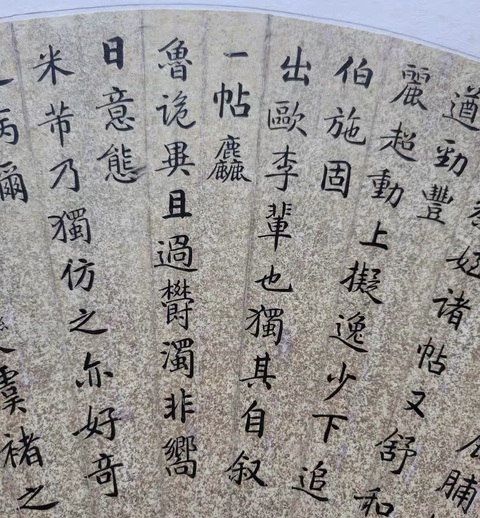 好諸帖又舒和
遒勁豐
麗超動上擬逸少下追
伯施固
出歐李輩也獨其自叙
一帖麤
魯詭異且過鬱濁非嚮
日意態
米芾乃獨仿之亦好奇
病爾
虞褚之